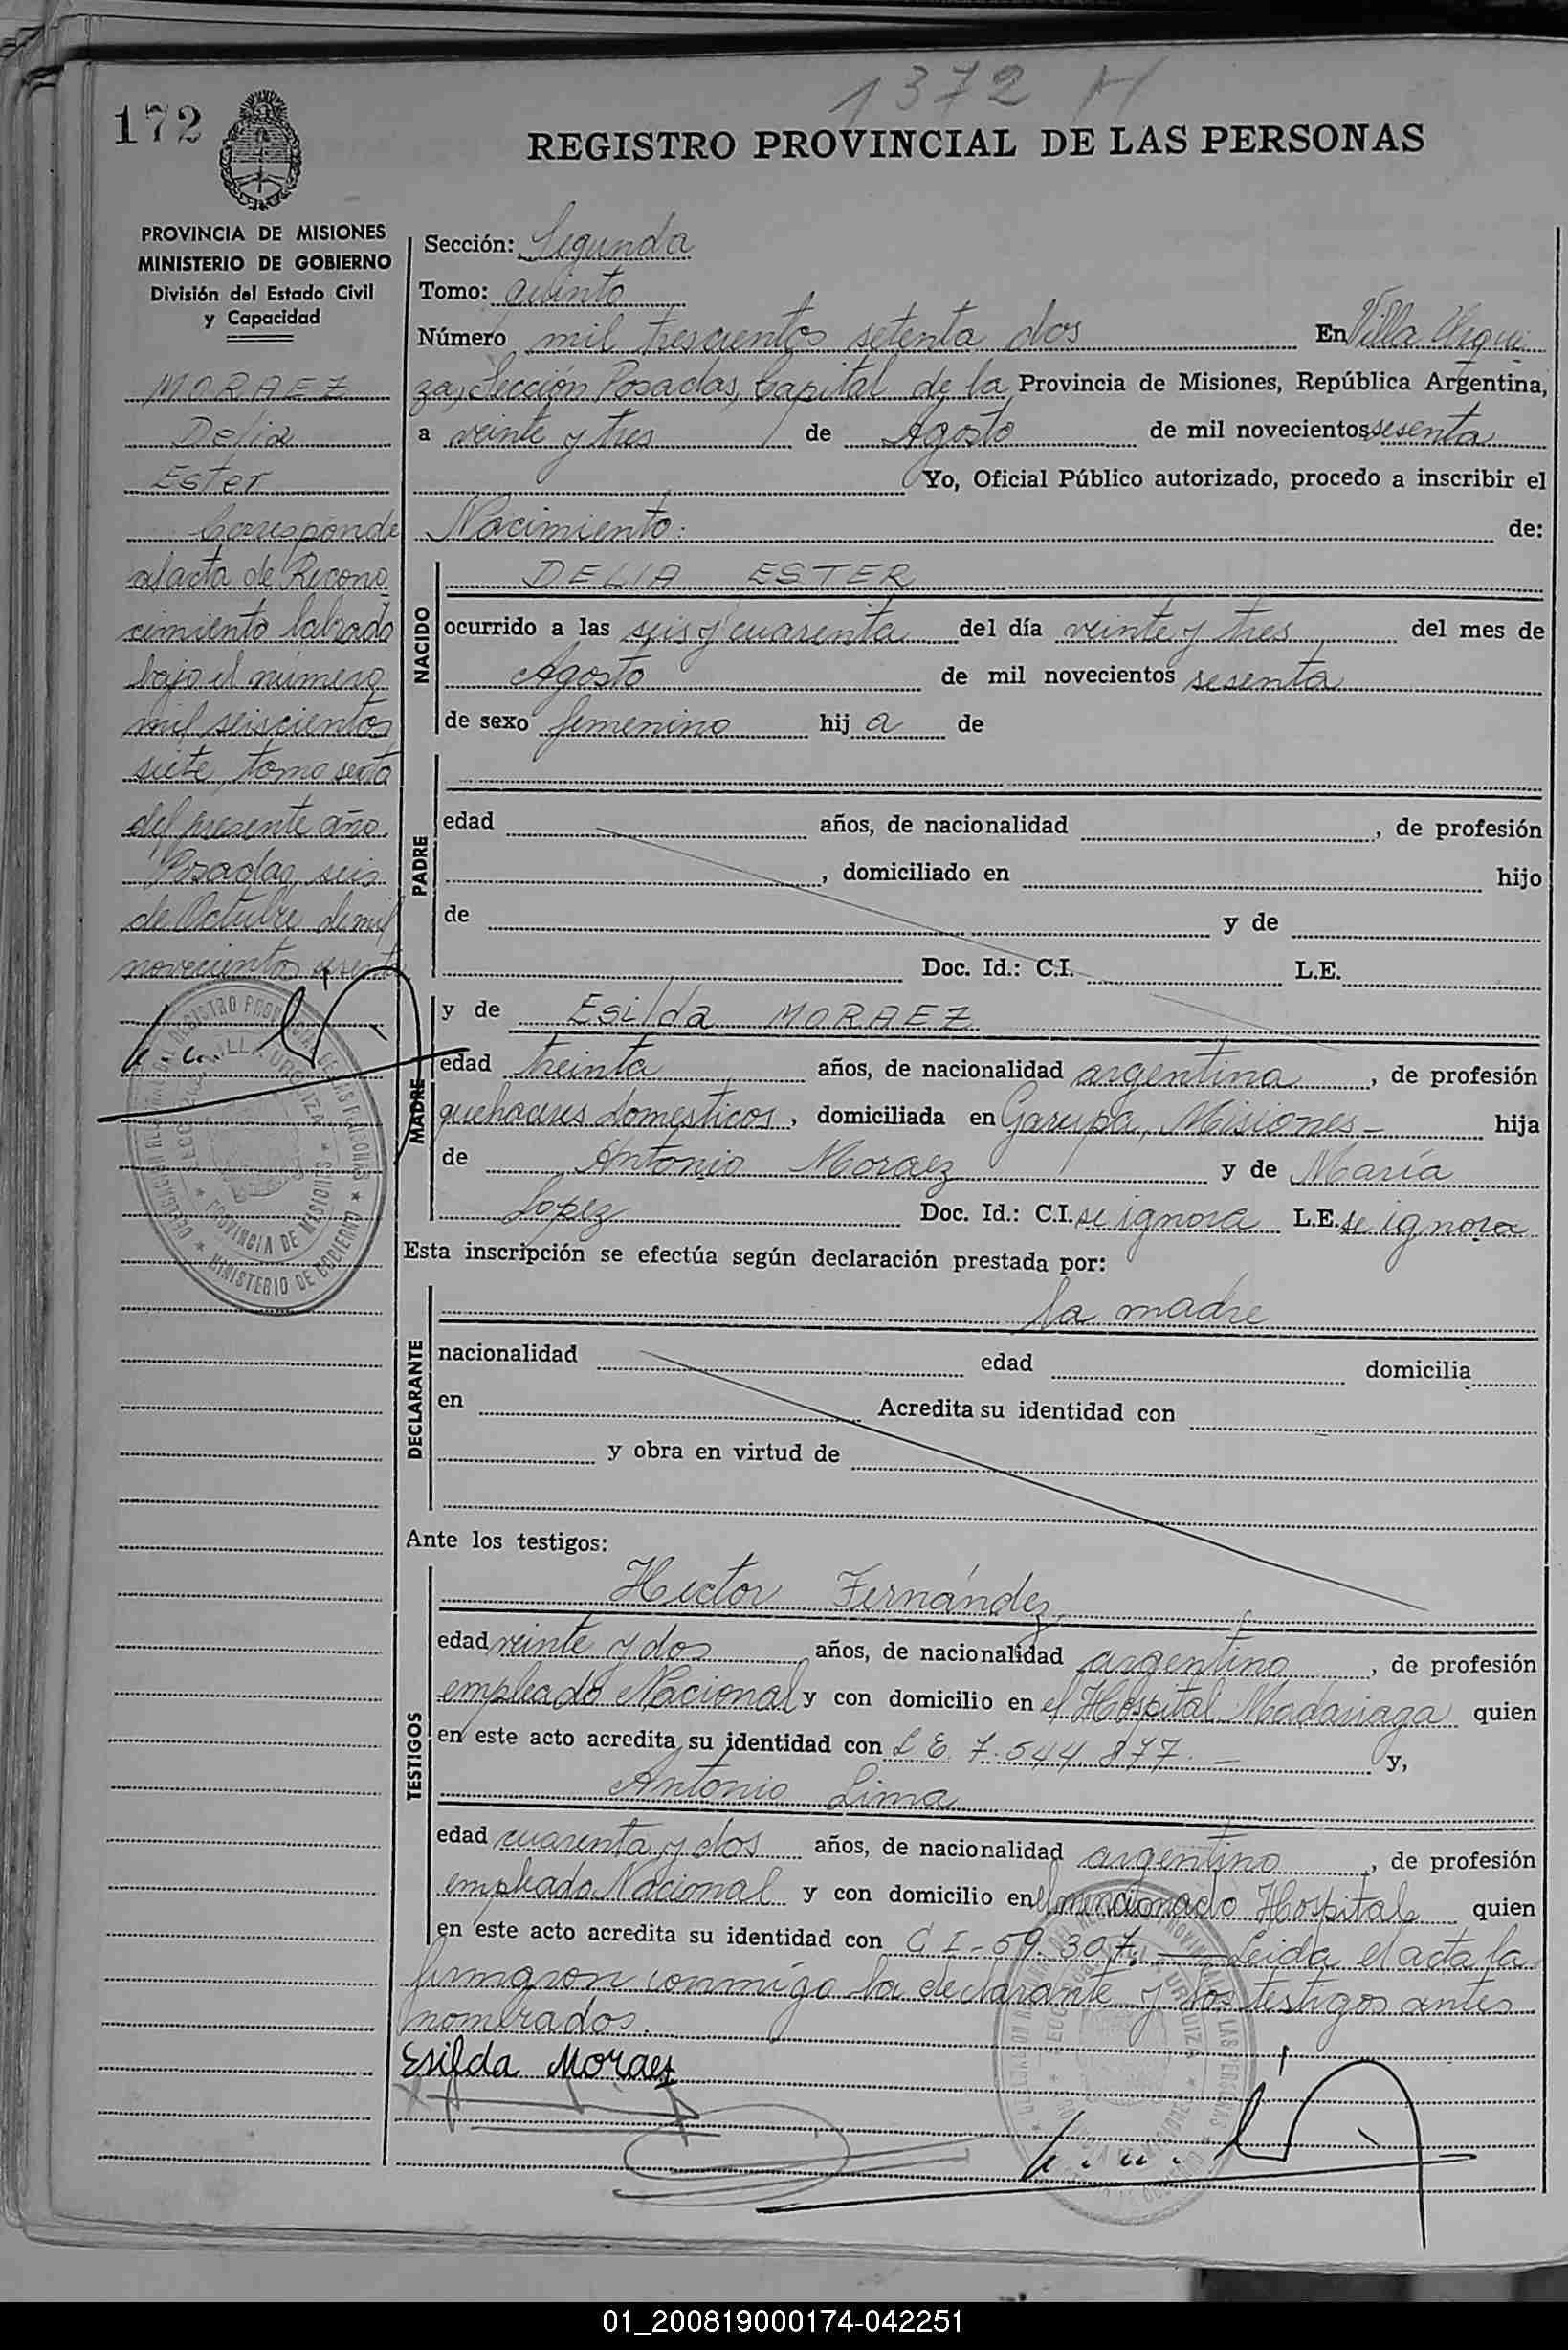 1372 H
172
REGISTRO PROVINCIAL DE LAS PERSONAS
PROVINCIA DE MISIONES
MINISTERIO DE GOBIERNO
División del Estado Civil
y Capacidad
MORAEZ
Delia
Ester
Corresponde
al acta de Recono
cimiento labrado
bajo el número
mil seiscientos
siete, tomo sexto
del presente año.
Posadas, seis
de Octubre de mil
novecientos sesenta
Sección: Segunda
Tomo: quinto
Número mil trescientos setenta dos En Villa Urqui
za, Sección Posadas, Capital de la Provincia de Misiones, República Argentina,
a veinte y tres de Agosto de mil novecientos sesenta
Yo, Oficial Público autorizado, procedo a inscribir el
Nacimiento: de:
NACIDO
DELIA ESTER
ocurrido a las seis y cuarenta del día veinte y tres del mes de
Agosto de mil novecientos sesenta
de sexo femenino hij a de
PADRE
edad años, de nacionalidad , de profesión
, domiciliado en hijo
de y de
Doc. Id.: C.I. L.E.
MADRE
y de Esilda MORAEZ
edad treinta años, de nacionalidad argentina, de profesión
quehaceres domesticos, domiciliada en Garupa, Misiones - hija
de Antonio Moraez y de María
Lopez Doc. Id.: C.I. se ignora L.E. se ignora
Esta inscripción se efectúa según declaración prestada por:
DECLARANTE
la madre
nacionalidad edad domicilia
en Acredita su identidad con
y obra en virtud de
Ante los testigos:
TESTIGOS
Hector Fernández
edad veinte y dos años, de nacionalidad argentino, de profesión
empleado Nacional y con domicilio en el Hospital Madariaga quien
en este acto acredita su identidad con L E 7.544.877. — y,
Antonio Lima
edad cuarenta y dos años, de nacionalidad argentino, de profesión
empleado Nacional y con domicilio en el mencionado Hospital quien
en este acto acredita su identidad con C I - 59.307. — Leida el acta la
firmaron conmigo la declarante y los testigos antes
nombrados.
Esilda Moraez
01_200819000174-042251